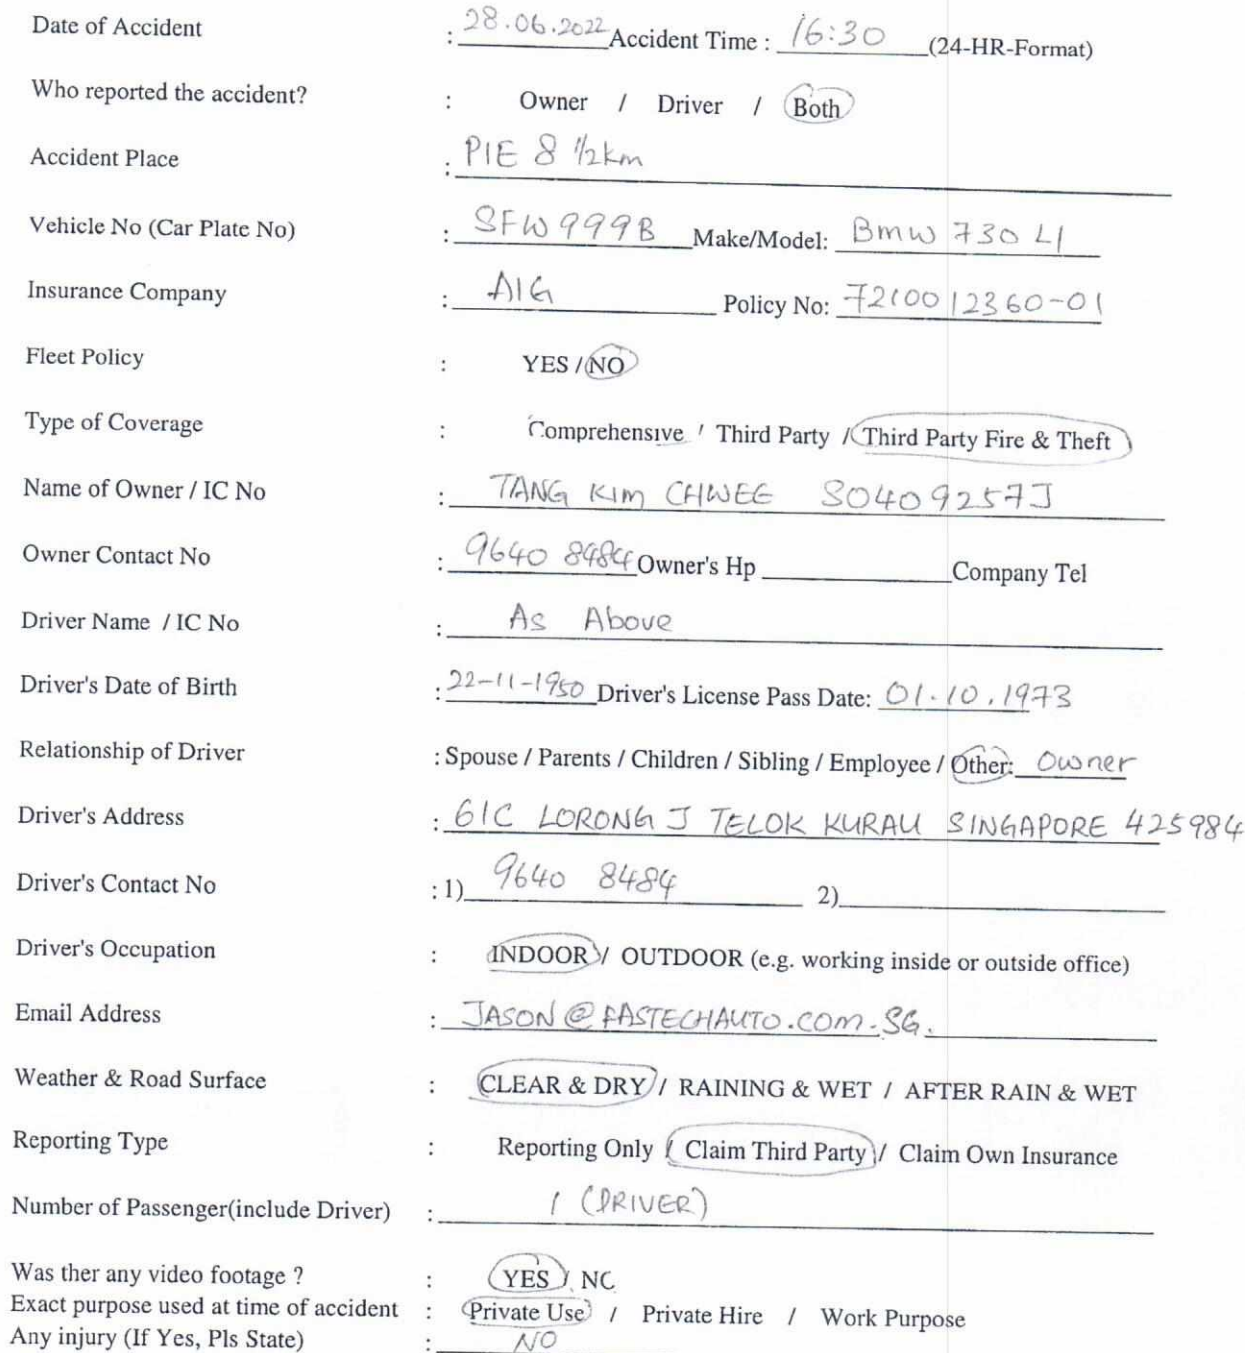 Date of Accident : 28.06.2022 Accident Time : 16:30 (24-HR-Format)
Who reported the accident? : Owner / Driver / Both
Accident Place : PIE 8 1/2km
Vehicle No (Car Plate No) : SFW 999B Make/Model: Bmw 730 LI
Insurance Company : AIG Policy No: 7210012360-01
Fleet Policy : YES / NO
Type of Coverage : Comprehensive / Third Party / Third Party Fire & Theft
Name of Owner / IC No : TANG KIM CHWEE S0409257J
Owner Contact No : 9640 8484 Owner's Hp Company Tel
Driver Name / IC No : As Above
Driver's Date of Birth : 22-11-1950 Driver's License Pass Date: 01.10.1973
Relationship of Driver : Spouse / Parents / Children / Sibling / Employee / Other: Owner
Driver's Address : 61C LORONG J TELOK KURAU SINGAPORE 425984
Driver's Contact No : 1) 9640 8484 2)
Driver's Occupation : INDOOR / OUTDOOR (e.g. working inside or outside office)
Email Address : JASON@FASTECHAUTO.COM.SG.
Weather & Road Surface : CLEAR & DRY / RAINING & WET / AFTER RAIN & WET
Reporting Type : Reporting Only / Claim Third Party / Claim Own Insurance
Number of Passenger(include Driver) : 1 (DRIVER)
Was ther any video footage ? : YES / NO
Exact purpose used at time of accident : Private Use / Private Hire / Work Purpose
Any injury (If Yes, Pls State) : NO